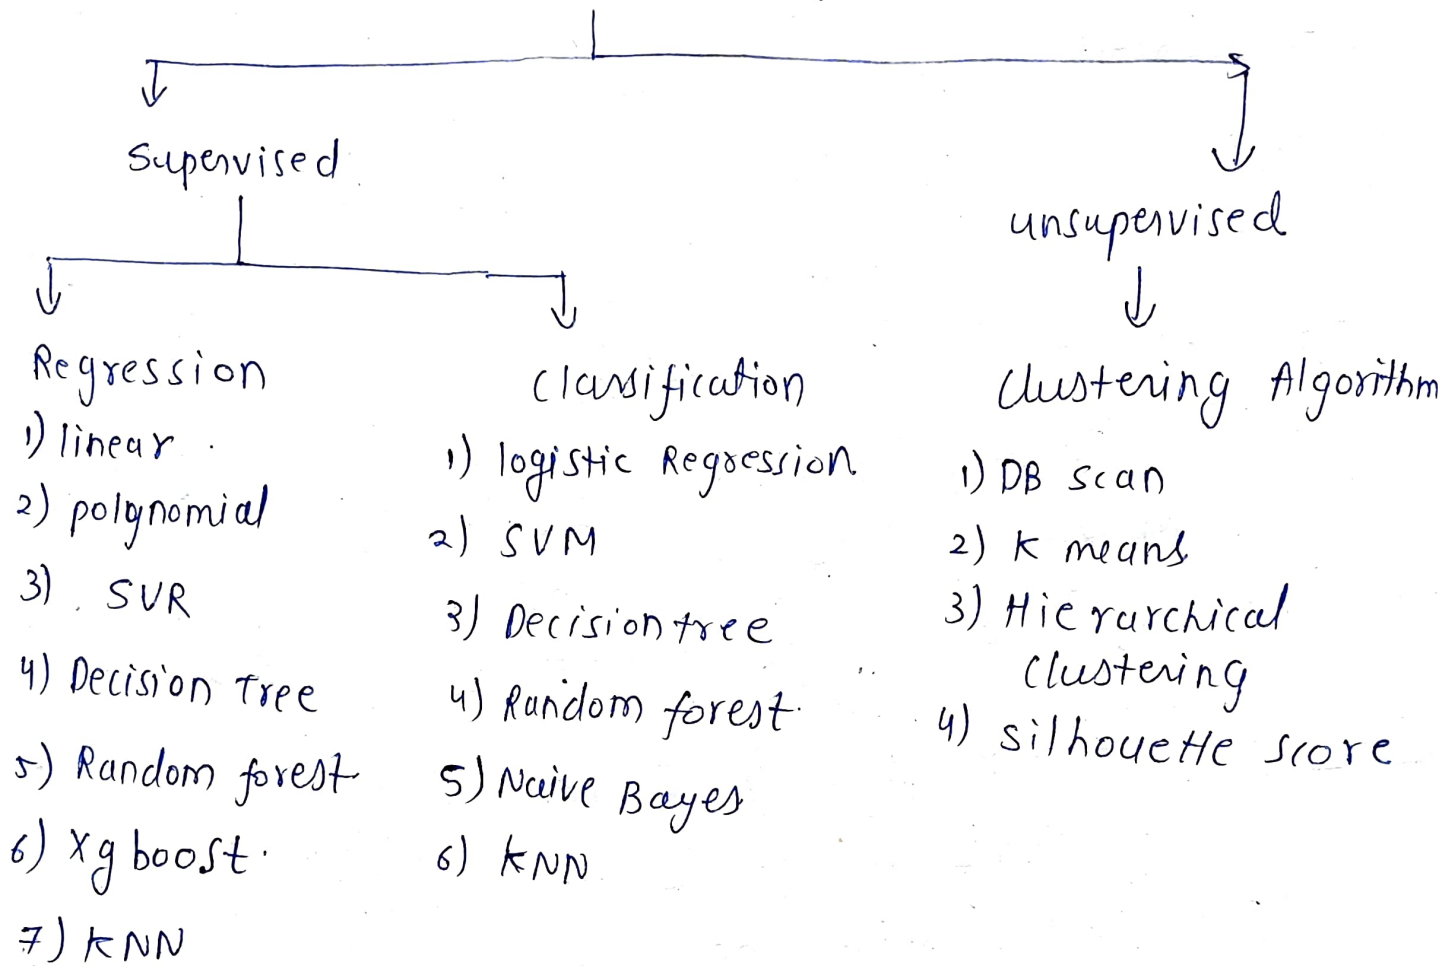 Supervised
unsupervised
Regression
1) linear
2) polynomial
3) SVR
4) Decision Tree
5) Random forest
6) Xg boost
7) KNN
Classification
1) logistic Regression
2) SVM
3) Decision tree
4) Random forest
5) Naive Bayes
6) KNN
Clustering Algorithm
1) DB scan
2) K means
3) Hierarchical
Clustering
4) silhouette score